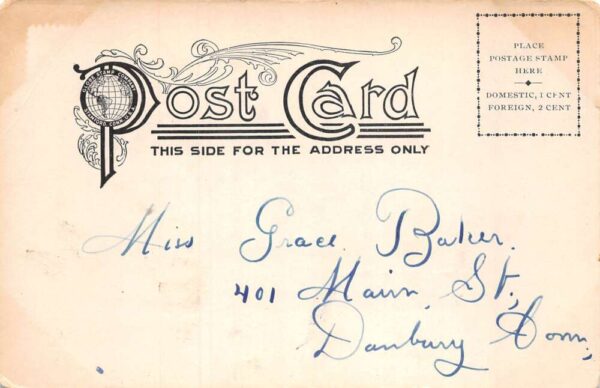 Post Card
THIS SIDE FOR THE ADDRESS ONLY
PLACE
POSTAGE STAMP
HERE
DOMESTIC, 1 CENT
FOREIGN, 2 CENT
Miss Grace Baker.
401 Main St.,
Danbury Conn,